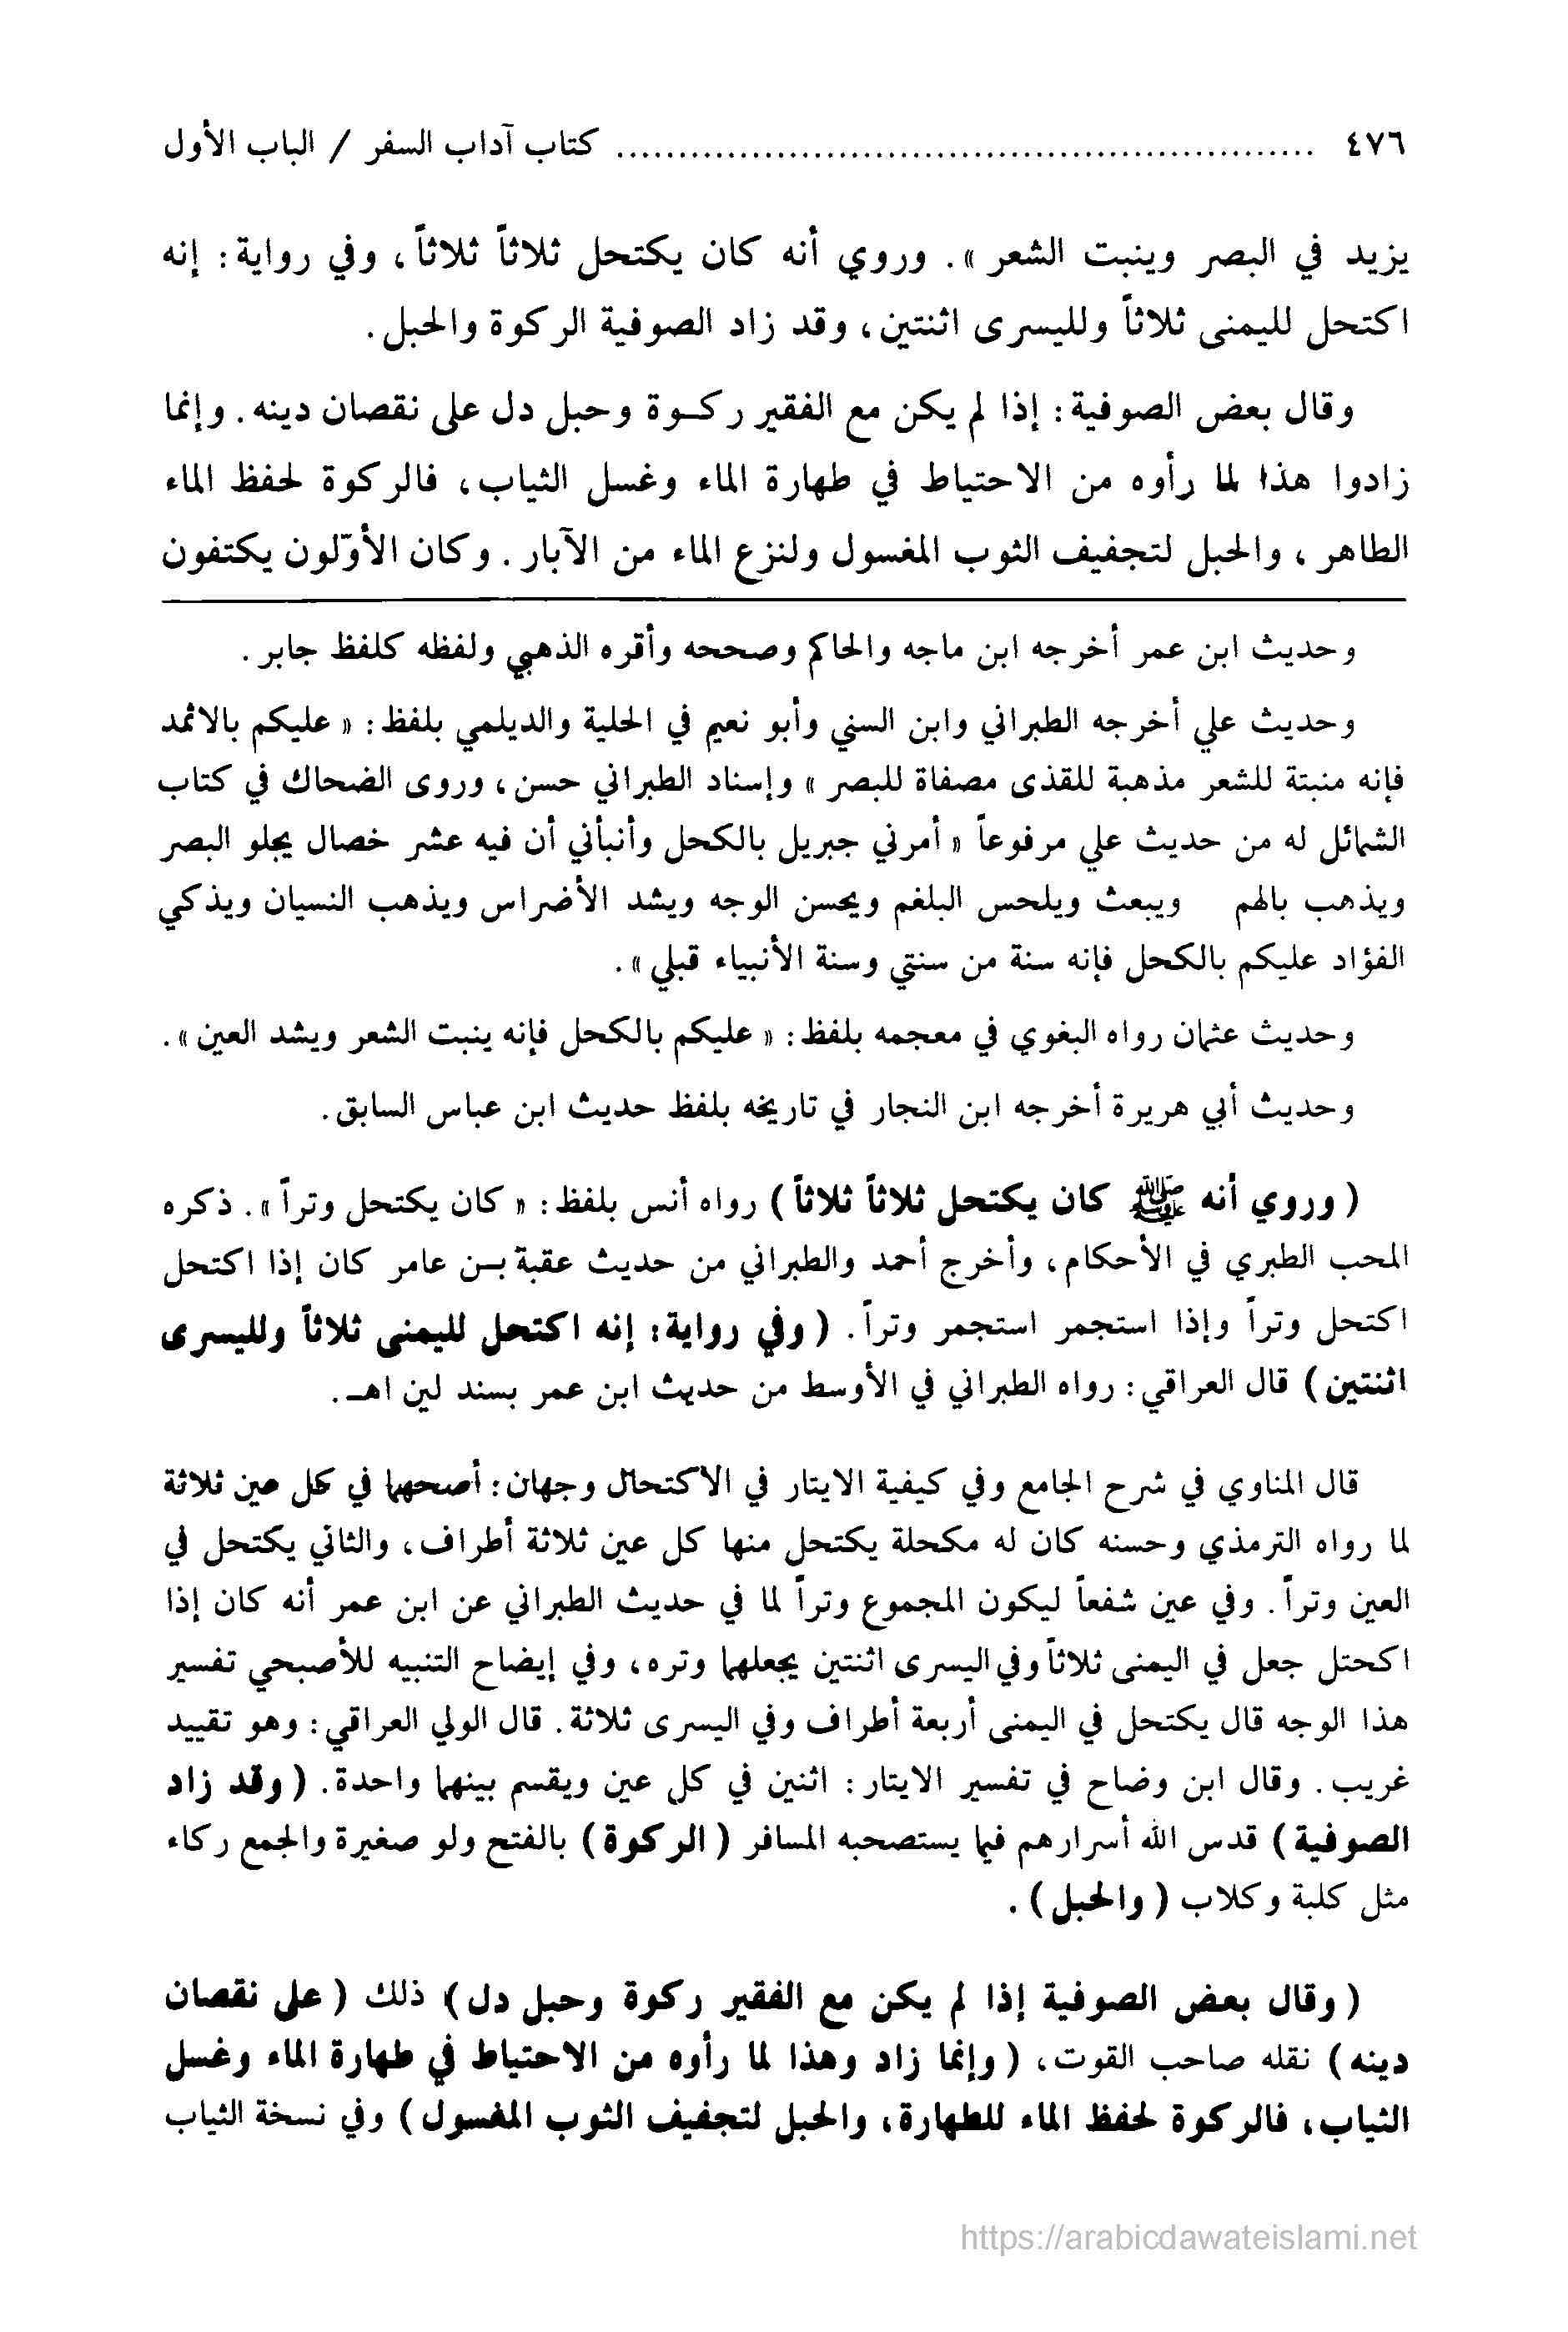 ٤٧٦ ........................................................ كتاب آداب السفر / الباب الأول
يزيد في البصر وينبت الشعر ». وروي أنه كان يكتحل ثلاثاً ثلاثاً، وفي رواية: إنه
اكتحل لليمنى ثلاثاً ولليسرى اثنتين، وقد زاد الصوفية الركوة والحبل.
وقال بعض الصوفية: إذا لم يكن مع الفقير ركـوة وحبل دل على نقصان دينه. وإنما
زادوا هذا لما رأوه من الاحتياط في طهارة الماء وغسل الثياب، فالركوة لحفظ الماء
الطاهر، والحبل لتجفيف الثوب المغسول ولنزع الماء من الآبار. وكان الأوّلون يكتفون
وحديث ابن عمر أخرجه ابن ماجه والحاكم وصححه وأقره الذهبي ولفظه كلفظ جابر.
وحديث علي أخرجه الطبراني وابن السني وأبو نعيم في الحلية والديلمي بلفظ: « عليكم بالاثمد
فإنه منبتة للشعر مذهبة للقذى مصفاة للبصر » وإسناد الطبراني حسن، وروى الضحاك في كتاب
الشمائل له من حديث علي مرفوعاً « أمرني جبريل بالكحل وأنبأني أن فيه عشر خصال يجلو البصر
ويذهب بالهم ويبعث ويلحس البلغم ويحسن الوجه ويشد الأضراس ويذهب النسيان ويذكي
الفؤاد عليكم بالكحل فإنه سنة من سنتي وسنة الأنبياء قبلي ».
وحديث عثمان رواه البغوي في معجمه بلفظ: « عليكم بالكحل فإنه ينبت الشعر ويشد العين ».
وحديث أبي هريرة أخرجه ابن النجار في تاريخه بلفظ حديث ابن عباس السابق.
( وروي أنه ﷺ كان يكتحل ثلاثاً ثلاثاً ) رواه أنس بلفظ: « كان يكتحل وتراً ». ذكره
المحب الطبري في الأحكام، وأخرج أحمد والطبراني من حديث عقبة بـن عامر كان إذا اكتحل
اكتحل وتراً وإذا استجمر استجمر وتراً. ( وفي رواية: إنه اكتحل لليمنى ثلاثاً ولليسرى
اثنتين ) قال العراقي: رواه الطبراني في الأوسط من حديث ابن عمر بسند لين اهـ.
قال المناوي في شرح الجامع وفي كيفية الايتار في الاكتحال وجهان: أصحهما في كل عين ثلاثة
لما رواه الترمذي وحسنه كان له مكحلة يكتحل منها كل عين ثلاثة أطراف، والثاني يكتحل في
العين وتراً. وفي عين شفعاً ليكون المجموع وتراً لما في حديث الطبراني عن ابن عمر أنه كان إذا
اكحتل جعل في اليمنى ثلاثاً وفي اليسرى اثنتين يجعلهما وتره، وفي إيضاح التنبيه للأصبحي تفسير
هذا الوجه قال يكتحل في اليمنى أربعة أطراف وفي اليسرى ثلاثة. قال الولي العراقي: وهو تقييد
غريب. وقال ابن وضاح في تفسير الايتار: اثنين في كل عين ويقسم بينهما واحدة. ( وقد زاد
الصوفية ) قدس الله أسرارهم فيما يستصحبه المسافر ( الركوة ) بالفتح ولو صغيرة والجمع ركاء
مثل كلبة وكلاب ( والحبل ) .
( وقال بعض الصوفية إذا لم يكن مع الفقير ركوة وحبل دل ) ذلك ( على نقصان
دينه ) نقله صاحب القوت، ( وإنما زاد وهذا لما رأوه من الاحتياط في طهارة الماء وغسل
الثياب، فالركوة لحفظ الماء للطهارة، والحبل لتجفيف الثوب المغسول ) وفي نسخة الثياب
https://arabicdawateislami.net